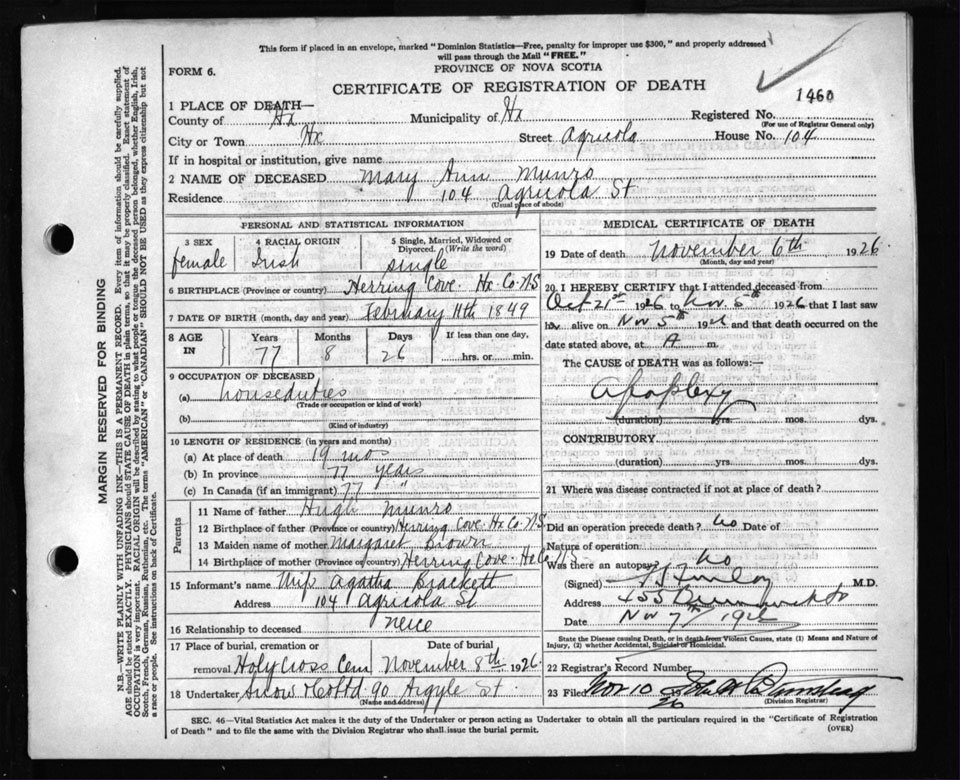 This form if placed in an envelope, marked "Dominion Statistics—Free, penalty for improper use $300," and properly addressed
will pass through the Mail "FREE."
PROVINCE OF NOVA SCOTIA
FORM 6.
CERTIFICATE OF REGISTRATION OF DEATH
1460
1 PLACE OF DEATH—
County of Hx Municipality of Hx Registered No.
(For use of Registrar General only)
City or Town Hx Street Agricola House No. 104
If in hospital or institution, give name
2 NAME OF DECEASED Mary Ann Munro
Residence 104 Agricola St
(Usual place of abode)
PERSONAL AND STATISTICAL INFORMATION
3 SEX 4 RACIAL ORIGIN 5 Single, Married, Widowed or
Divorced (Write the word)
female Irish single
6 BIRTHPLACE (Province or country) Herring Cove Hx Co. N.S
7 DATE OF BIRTH (month, day and year) February 11th 1849
8 AGE IN Years Months Days If less than one day,
77 8 26 hrs. or min.
9 OCCUPATION OF DECEASED
(a) houseduties
(Trade or occupation or kind of work)
(b)
(Kind of industry)
10 LENGTH OF RESIDENCE (in years and months)
(a) At place of death 19 mos
(b) In province 77 years
(c) In Canada (if an immigrant) 77 "
Parents
11 Name of father Hugh Munro
12 Birthplace of father (Province or country) Herring Cove. Hx Co. N.S
13 Maiden name of mother Margaret Brown
14 Birthplace of mother (Province or country) Herring Cove. Hx Co N.S.
15 Informant's name Miss Agatha Brackett
Address 104 Agricola St
16 Relationship to deceased neice
17 Place of burial, cremation or Date of burial
removal Holy Cross Cem November 8th 1926
18 Undertaker Snow & Co Ltd 90 Argyle St.
(Name and address)
MEDICAL CERTIFICATE OF DEATH
19 Date of death November 6th 1926
(Month, day and year)
20 I HEREBY CERTIFY that I attended deceased from
Oct 21st 1926 to Nov. 6th 1926 that I last saw
her alive on Nov 5th 1926 and that death occurred on the
date stated above, at A m.
The CAUSE OF DEATH was as follows:—
Apoplexy
(duration) yrs. mos. dys.
CONTRIBUTORY
(duration) yrs. mos. dys.
21 Where was disease contracted if not at place of death?
Did an operation precede death? no Date of
Nature of operation
Was there an autopsy? no
(Signed) M.D.
Address 455 Brunswick St
Date Nov 7th 1926
State the Disease causing Death, or in death from Violent Causes, state (1) Means and Nature of
Injury, (2) whether Accidental, Suicidal or Homicidal.
22 Registrar's Record Number
23 Filed Nov 10 1926
(Division Registrar)
SEC. 46—Vital Statistics Act makes it the duty of the Undertaker or person acting as Undertaker to obtain all the particulars required in the "Certificate of Registration
of Death" and to file the same with the Division Registrar who shall issue the burial permit. (OVER)
MARGIN RESERVED FOR BINDING
N.B.—WRITE PLAINLY WITH UNFADING INK—THIS IS A PERMANENT RECORD. Every item of information should be carefully supplied.
AGE should be stated EXACTLY. PHYSICIANS should STATE CAUSE OF DEATH in plain terms, so that it may be properly classified. Exact statement of
OCCUPATION is very important. RACIAL ORIGIN will be described by stating to what people or tongue the deceased person belonged, whether English, Irish,
Scotch, French, German, Russian, Ruthenian, etc. The terms "AMERICAN" or "CANADIAN" SHOULD NOT BE USED as they express citizenship but not
a race or people. See instructions on back of Certificate.